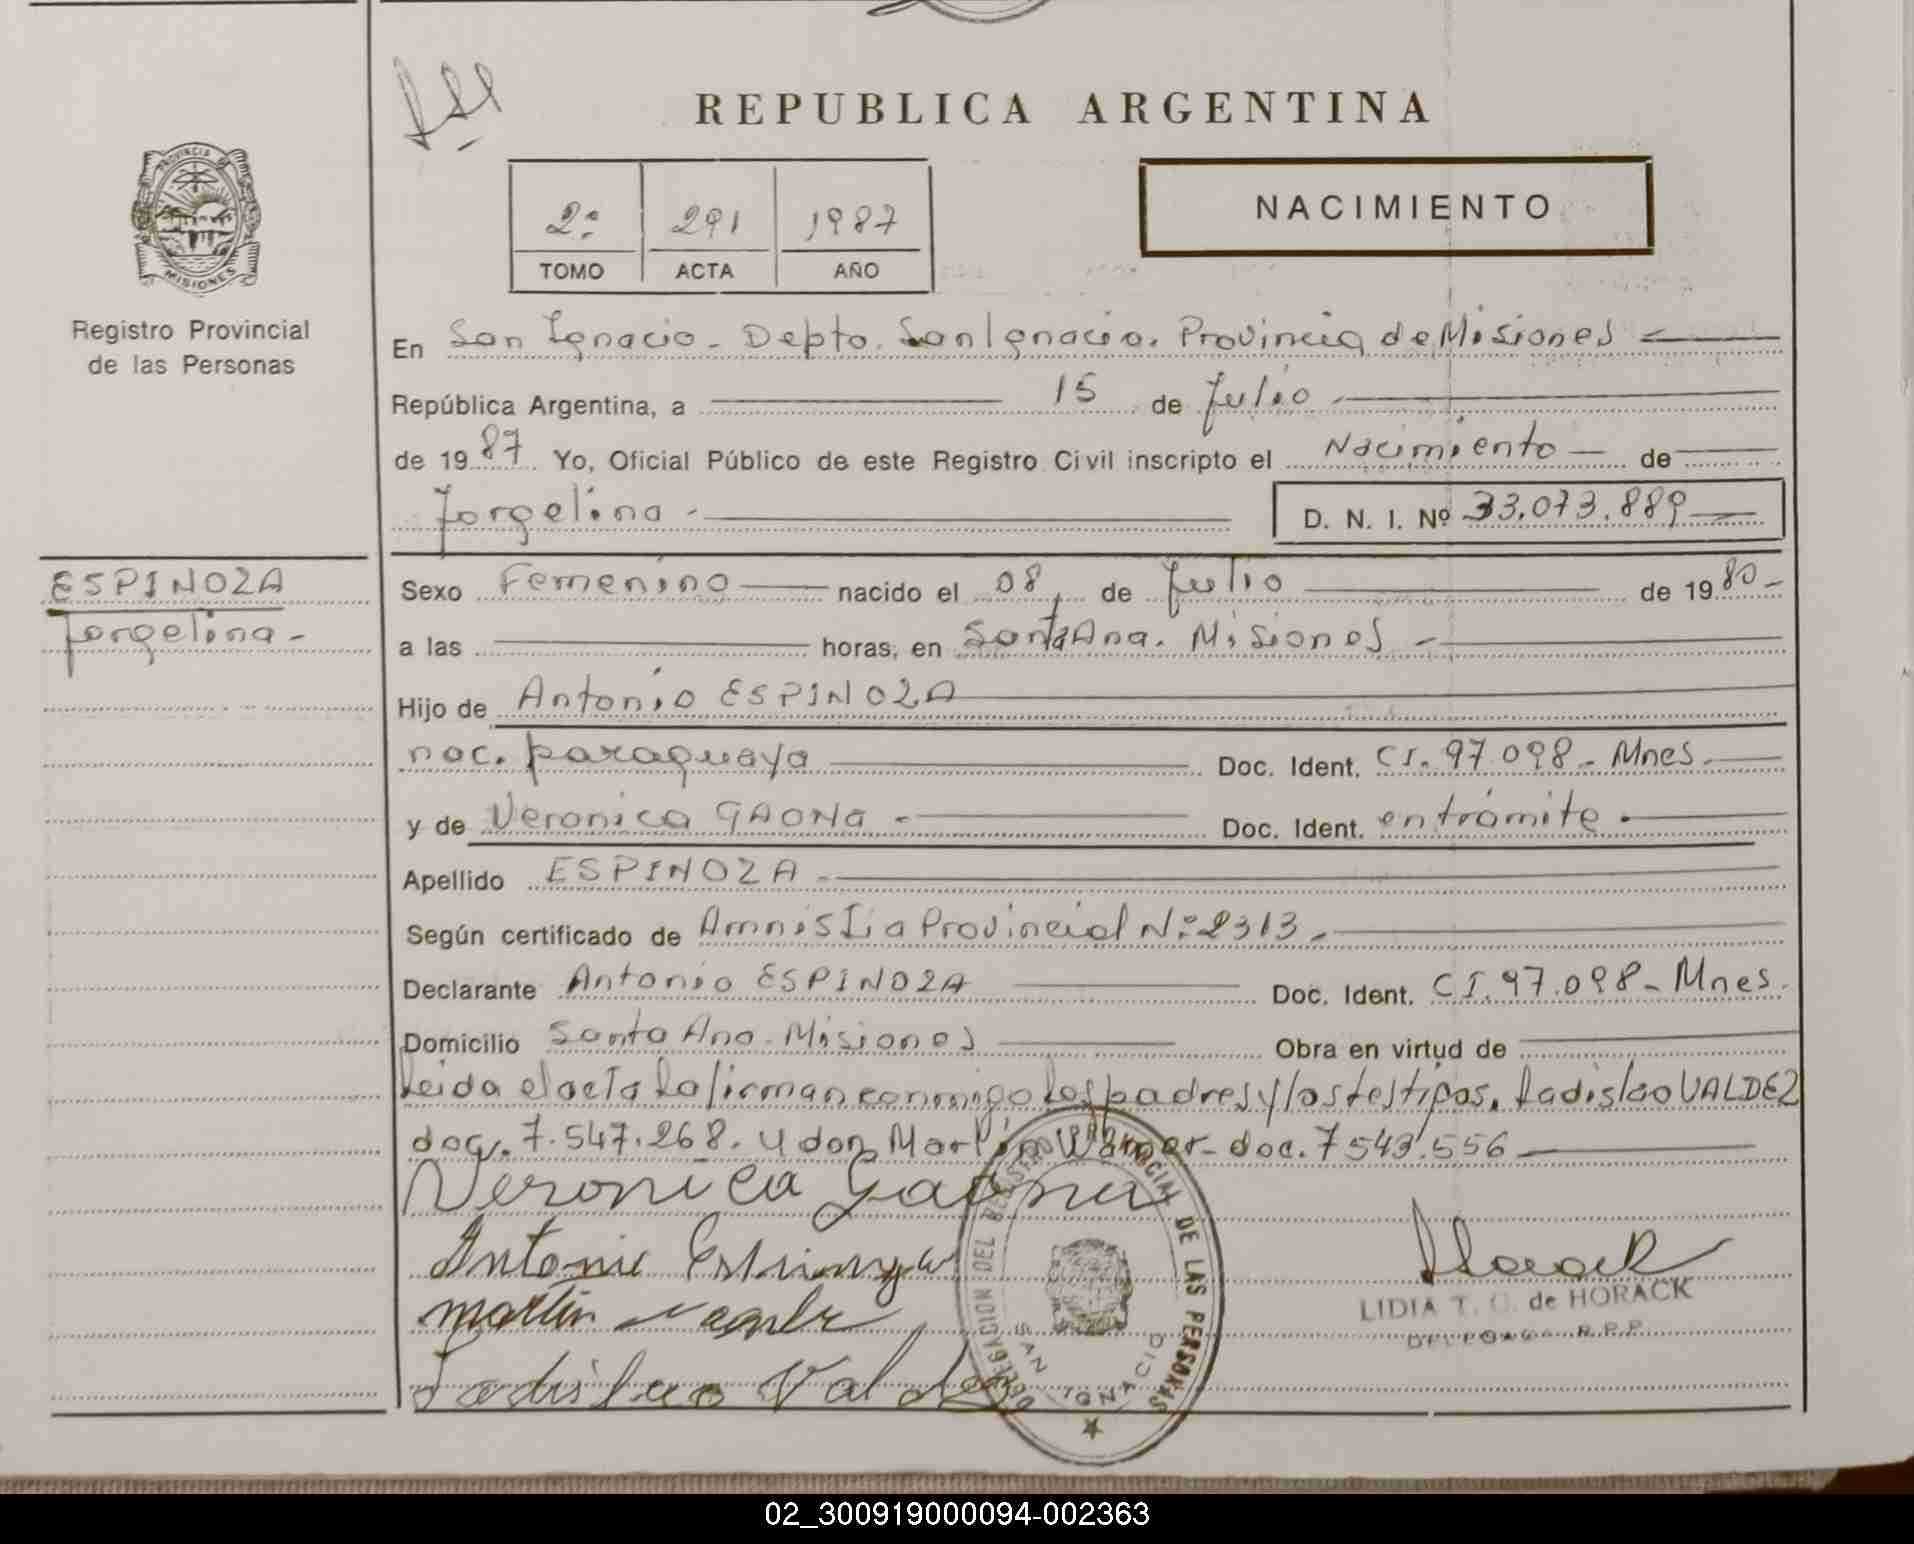 REPUBLICA ARGENTINA
PROVINCIA DE
MISIONES
Registro Provincial
de las Personas
2º 291 1987
TOMO ACTA AÑO
NACIMIENTO
En San Ignacio - Depto. San Ignacio. Provincia de Misiones
República Argentina, a 15 de Julio
de 1987 Yo, Oficial Público de este Registro Civil inscripto el Nacimiento de
Jorgelina - D. N. I. Nº 33.073.889
ESPINOZA
Jorgelina -
Sexo Femenino nacido el 08 de Julio de 1980-
a las horas, en Santa Ana. Misiones -
Hijo de Antonio ESPINOZA
nac. paraguaya Doc. Ident. CI. 97.098 - Mnes
y de Veronica GAONA - Doc. Ident. en trámite.
Apellido ESPINOZA
Según certificado de Amnistia Provincial Nº 2313.-
Declarante Antonio ESPINOZA Doc. Ident. CI. 97.098 - Mnes.
Domicilio Santa Ana. Misiones Obra en virtud de
Leida el acta la firman conmigo los padres y los testigos, Ladislao VALDEZ
doc. 7.547.268. y don Martin doc. 7543.556
Veronica Gaona
Antonio
Martin
Ladislao Valdez
DELEGACION DEL REGISTRO PROVINCIAL DE LAS PERSONAS
SAN IGNACIO
Horack
LIDIA T. de HORACK
R.P.P.
02_300919000094-002363